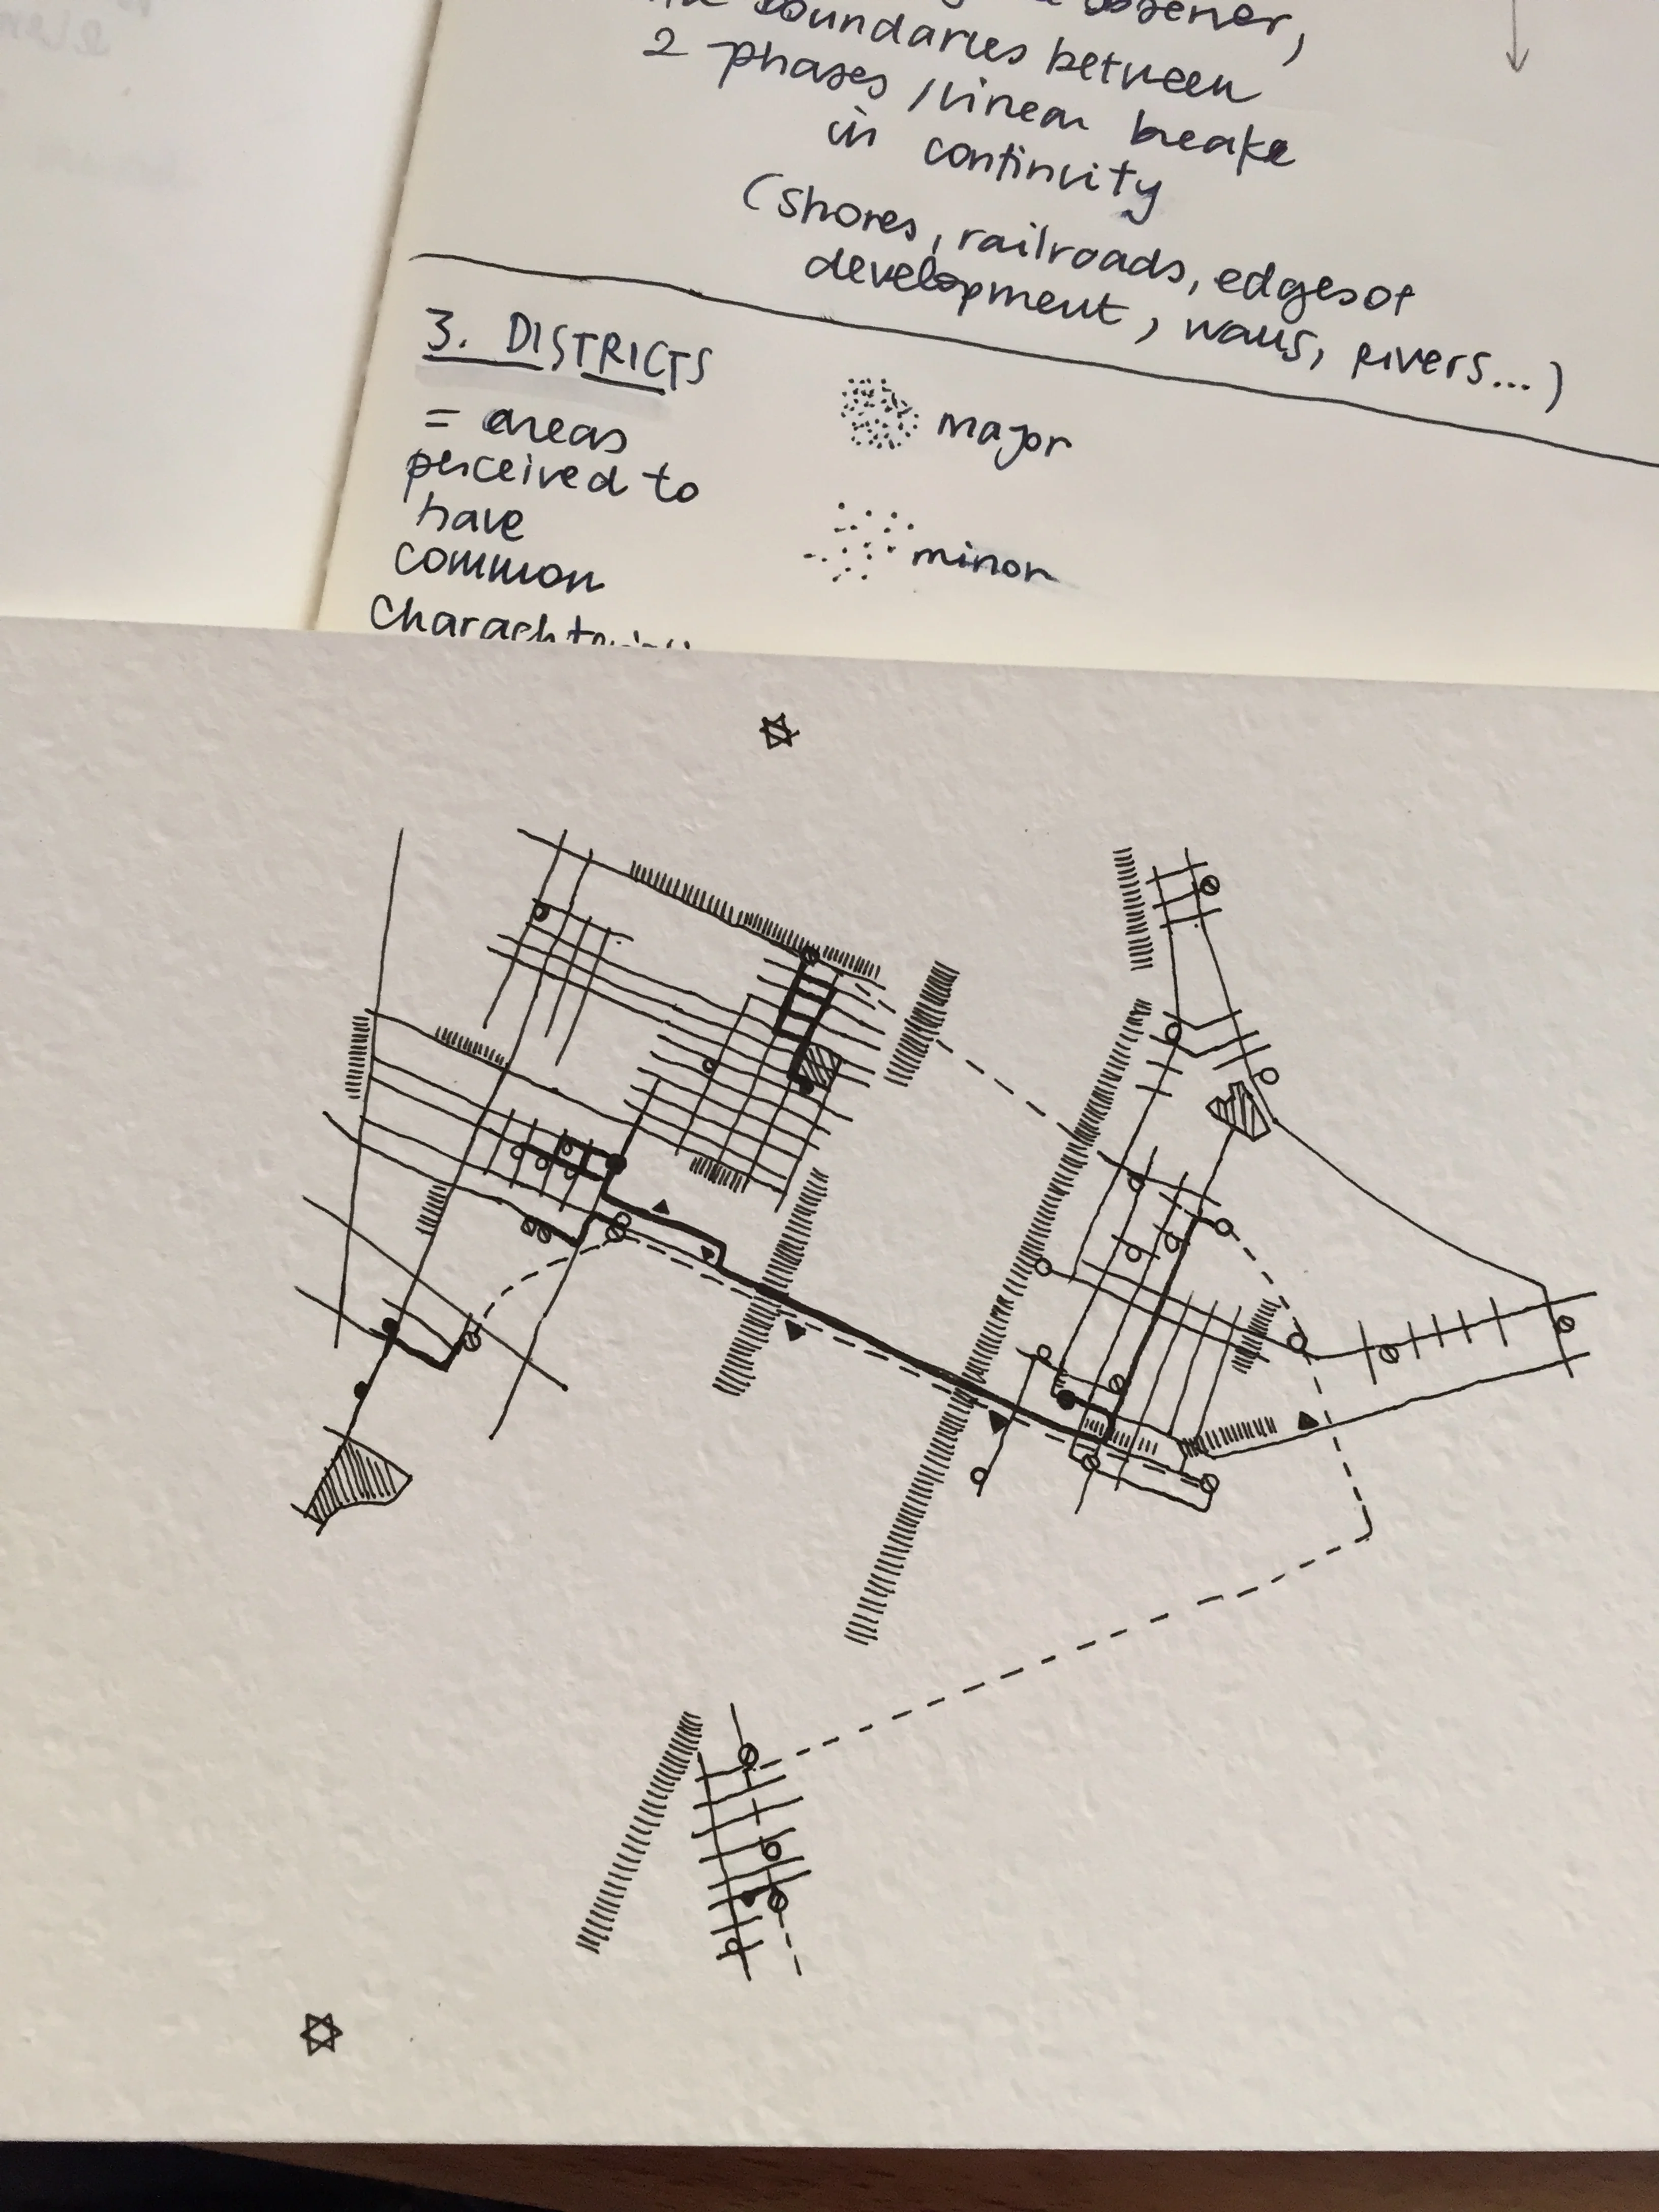 observer,
boundaries between
2 phases / linear breake
in continuity
(shores, railroads, edges of
development, walls, rivers...)
3. DISTRICTS
= areas
perceived to
have
common
major
minor